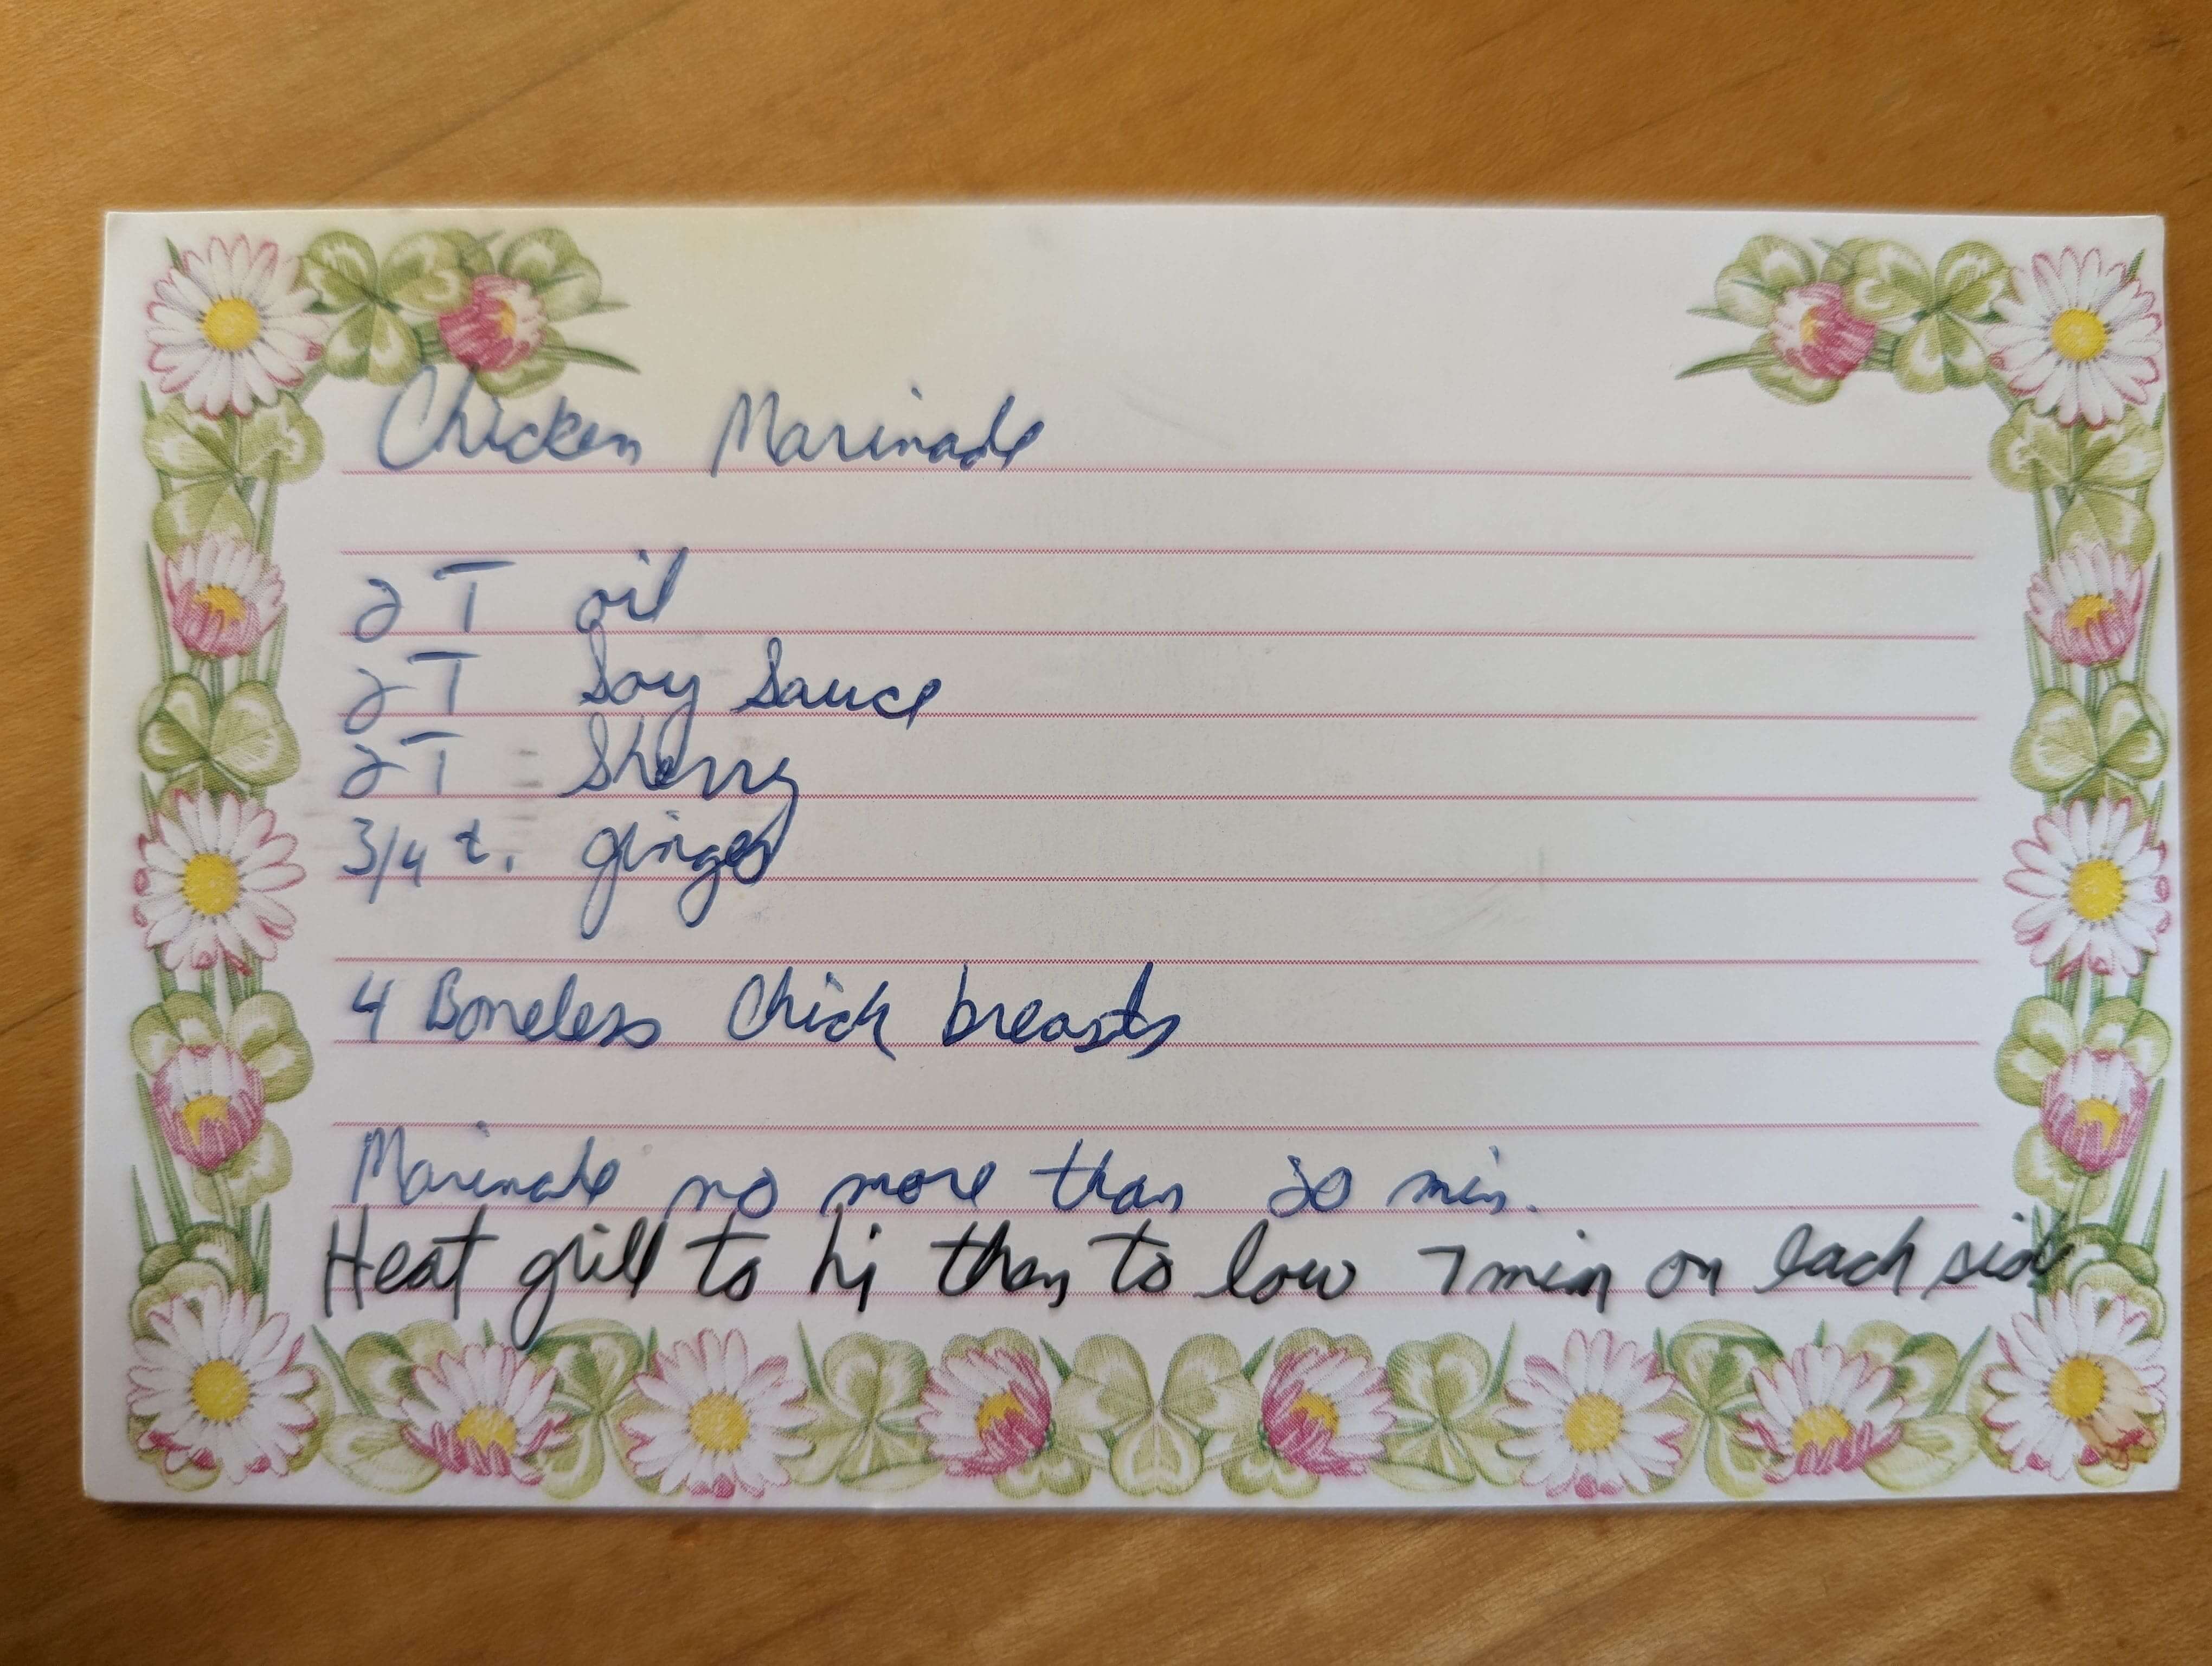 Chicken Marinade
2 T oil
2 T Soy Sauce
2 T Sherry
3/4 t. ginger
4 Boneless Chick breasts
Marinade no more than 20 min.
Heat grill to hi then to low 7 min on each side